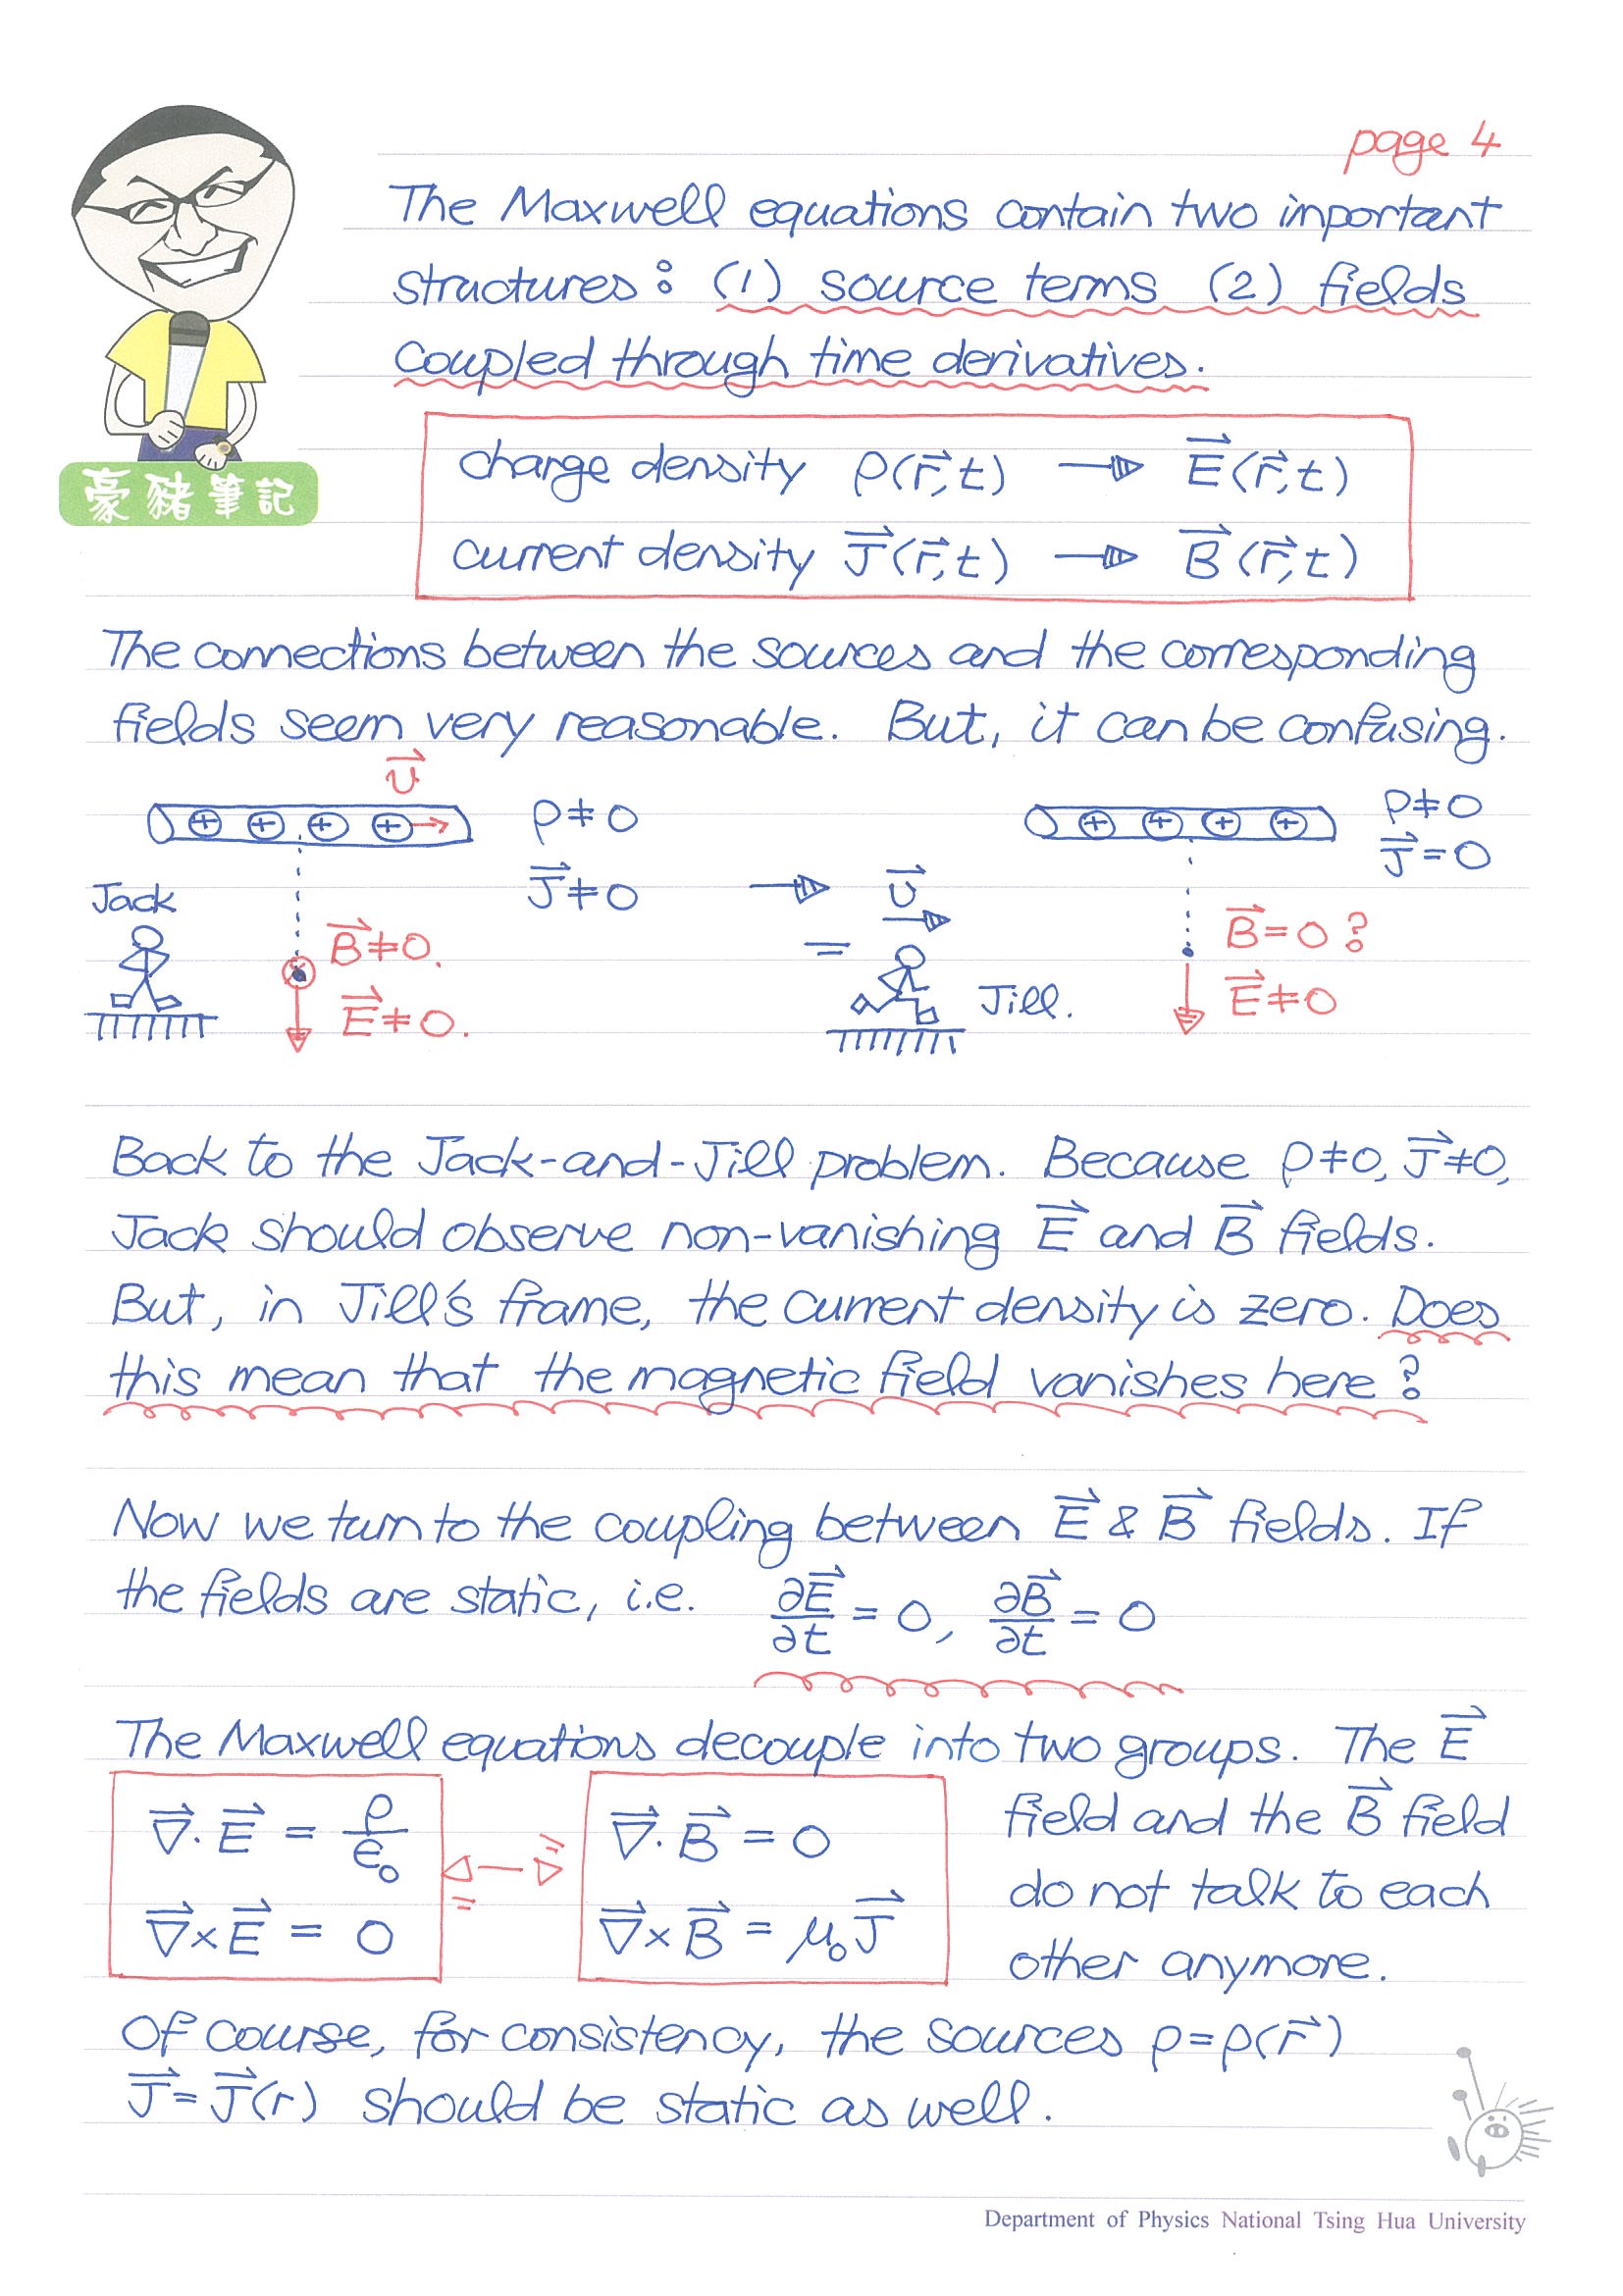 page 4
The Maxwell equations contain two important
structures: (1) source terms (2) fields
coupled through time derivatives.
豪豬筆記
charge density ρ(r⃗,t) → E⃗(r⃗,t)
current density J⃗(r⃗,t) → B⃗(r⃗,t)
The connections between the sources and the corresponding
fields seem very reasonable. But, it can be confusing.
v⃗
+ + + +
ρ≠0
J⃗≠0
Jack
B⃗≠0.
E⃗≠0.
→
v⃗
Jill.
+ + + +
ρ≠0
J⃗=0
B⃗=0?
E⃗≠0
Back to the Jack-and-Jill problem. Because ρ≠0, J⃗≠0,
Jack should observe non-vanishing E⃗ and B⃗ fields.
But, in Jill's frame, the current density is zero. Does
this mean that the magnetic field vanishes here?
Now we turn to the coupling between E⃗ & B⃗ fields. If
the fields are static, i.e. ∂E⃗/∂t = 0, ∂B⃗/∂t = 0
The Maxwell equations decouple into two groups. The E⃗
field and the B⃗ field
do not talk to each
other anymore.
∇⃗·E⃗ = ρ/ε₀
∇⃗×E⃗ = 0
∇⃗·B⃗ = 0
∇⃗×B⃗ = μ₀J⃗
Of course, for consistency, the sources ρ=ρ(r⃗)
J⃗=J⃗(r) should be static as well.
Department of Physics National Tsing Hua University